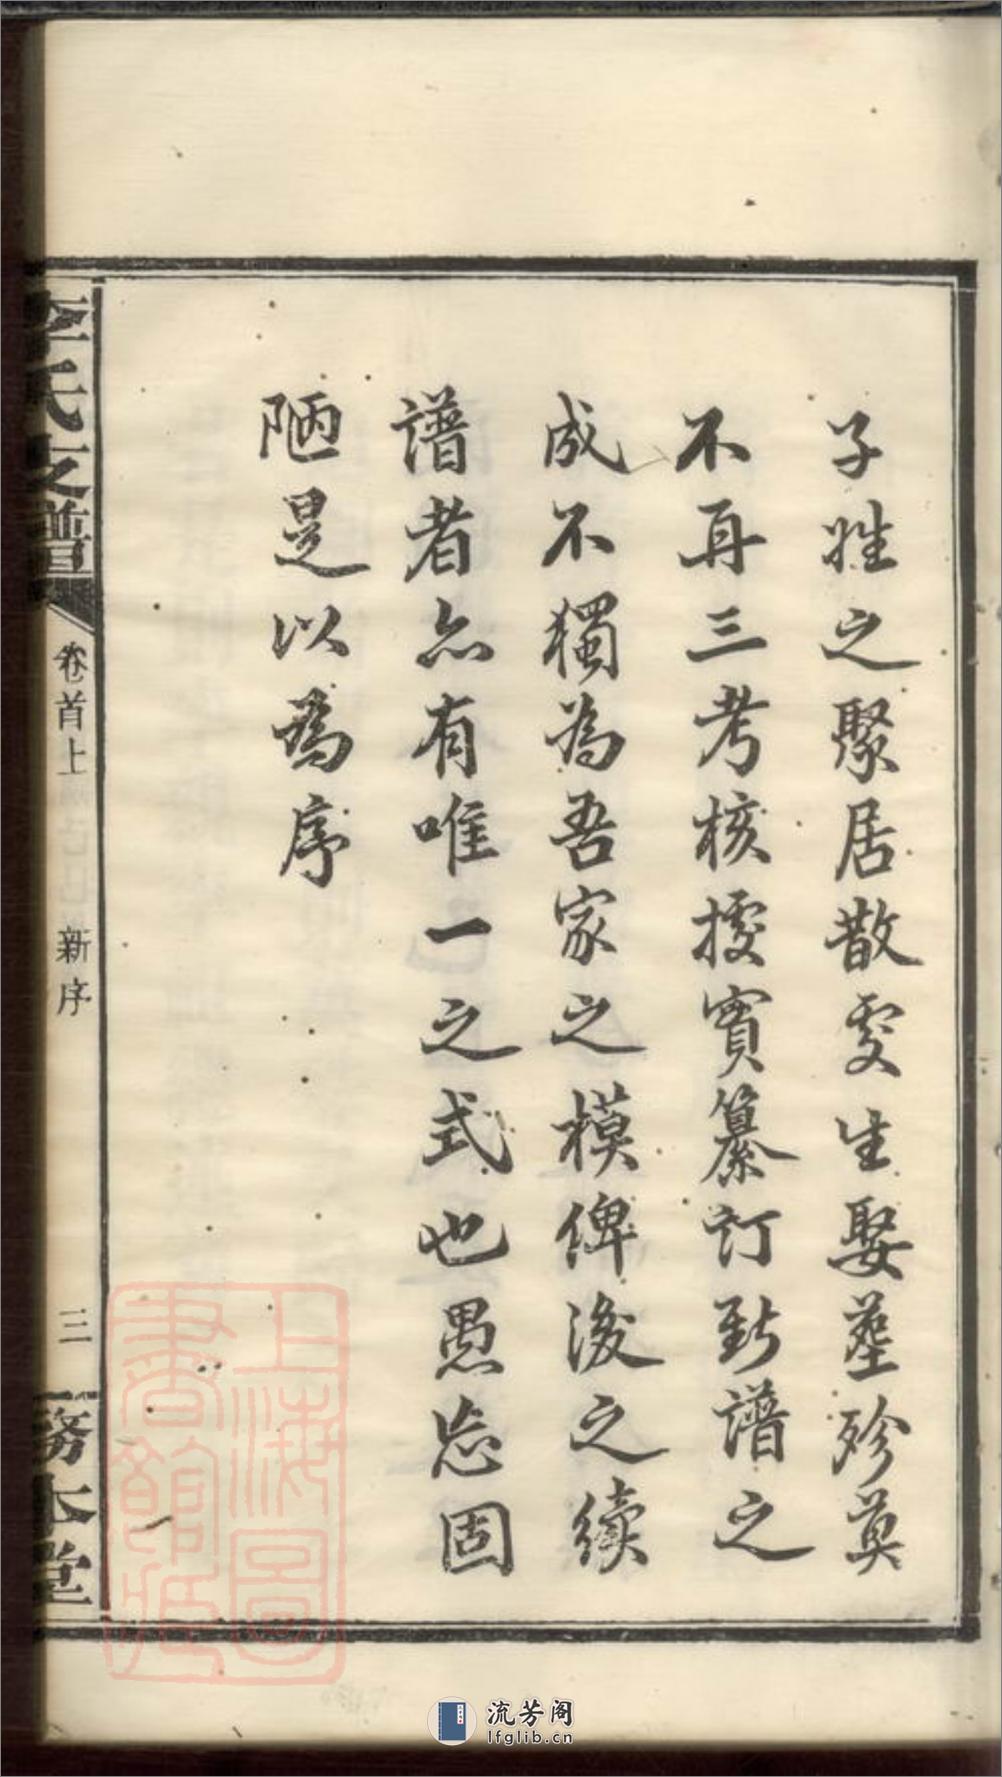 子姓之聚居散處生娶塟殄莫
不再三考核摭實纂訂新譜之
成不獨為吾家之模俾後之續
譜者亦有唯一之式也愚忘固
陋是以為序
李氏支譜
卷首上
新序
三
務本堂
上海圖
書館藏
流芳阁
lfglib.cn